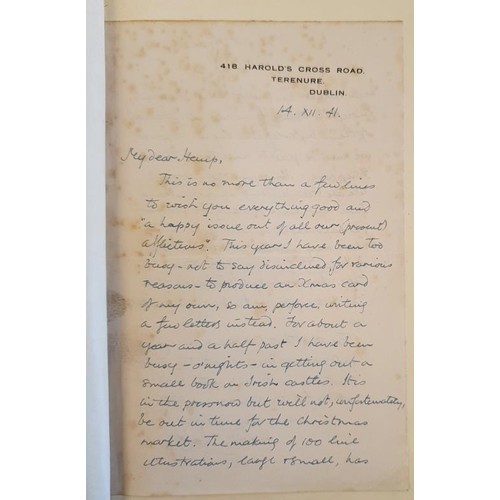 41B HAROLD'S CROSS ROAD.
TERENURE.
DUBLIN.
14. XII. 41.
My dear Hemp,
This is no more than a few lines
to wish you everything good and
"a happy issue out of all our (present)
afflictions". This year I have been too
busy – not to say disinclined, for various
reasons – to produce an Xmas card
of my own, so am, perforce, writing
a few letters instead. For about a
year and a half past I have been
busy – o'nights – in getting out a
small book on Irish castles. It is
in the press now but will not, unfortunately,
be out in time for the Christmas
market. The making of 100 line
illustrations, large & small, has